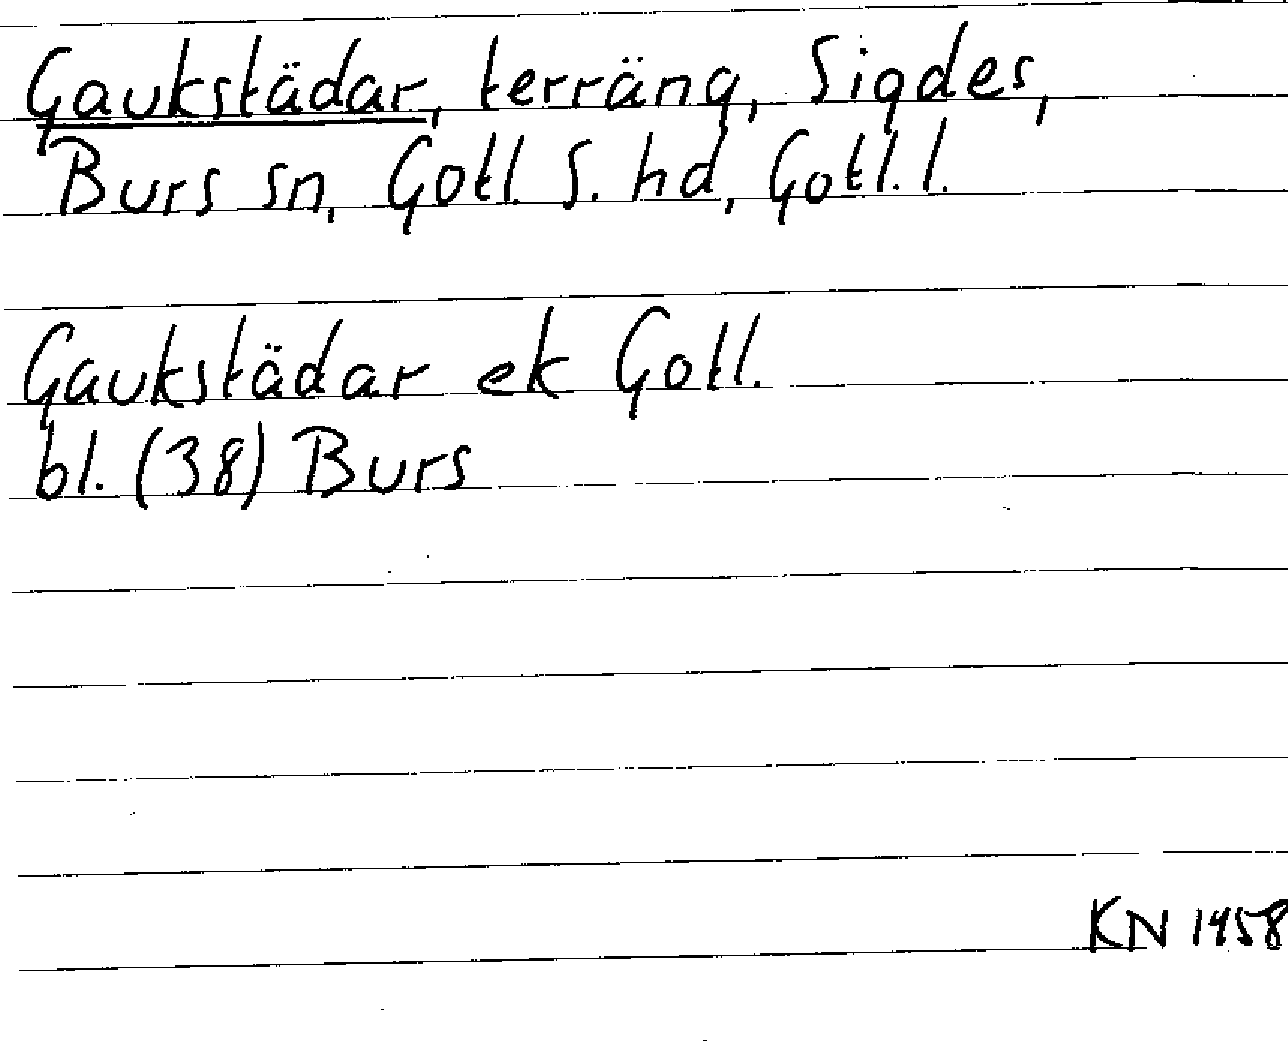 Gaukstädar, terräng, Sigdes,
Burs sn, Gotl. S. hd, Gotl. l.
Gaukstädar ek Gotl.
bl. (38) Burs
KN 1958